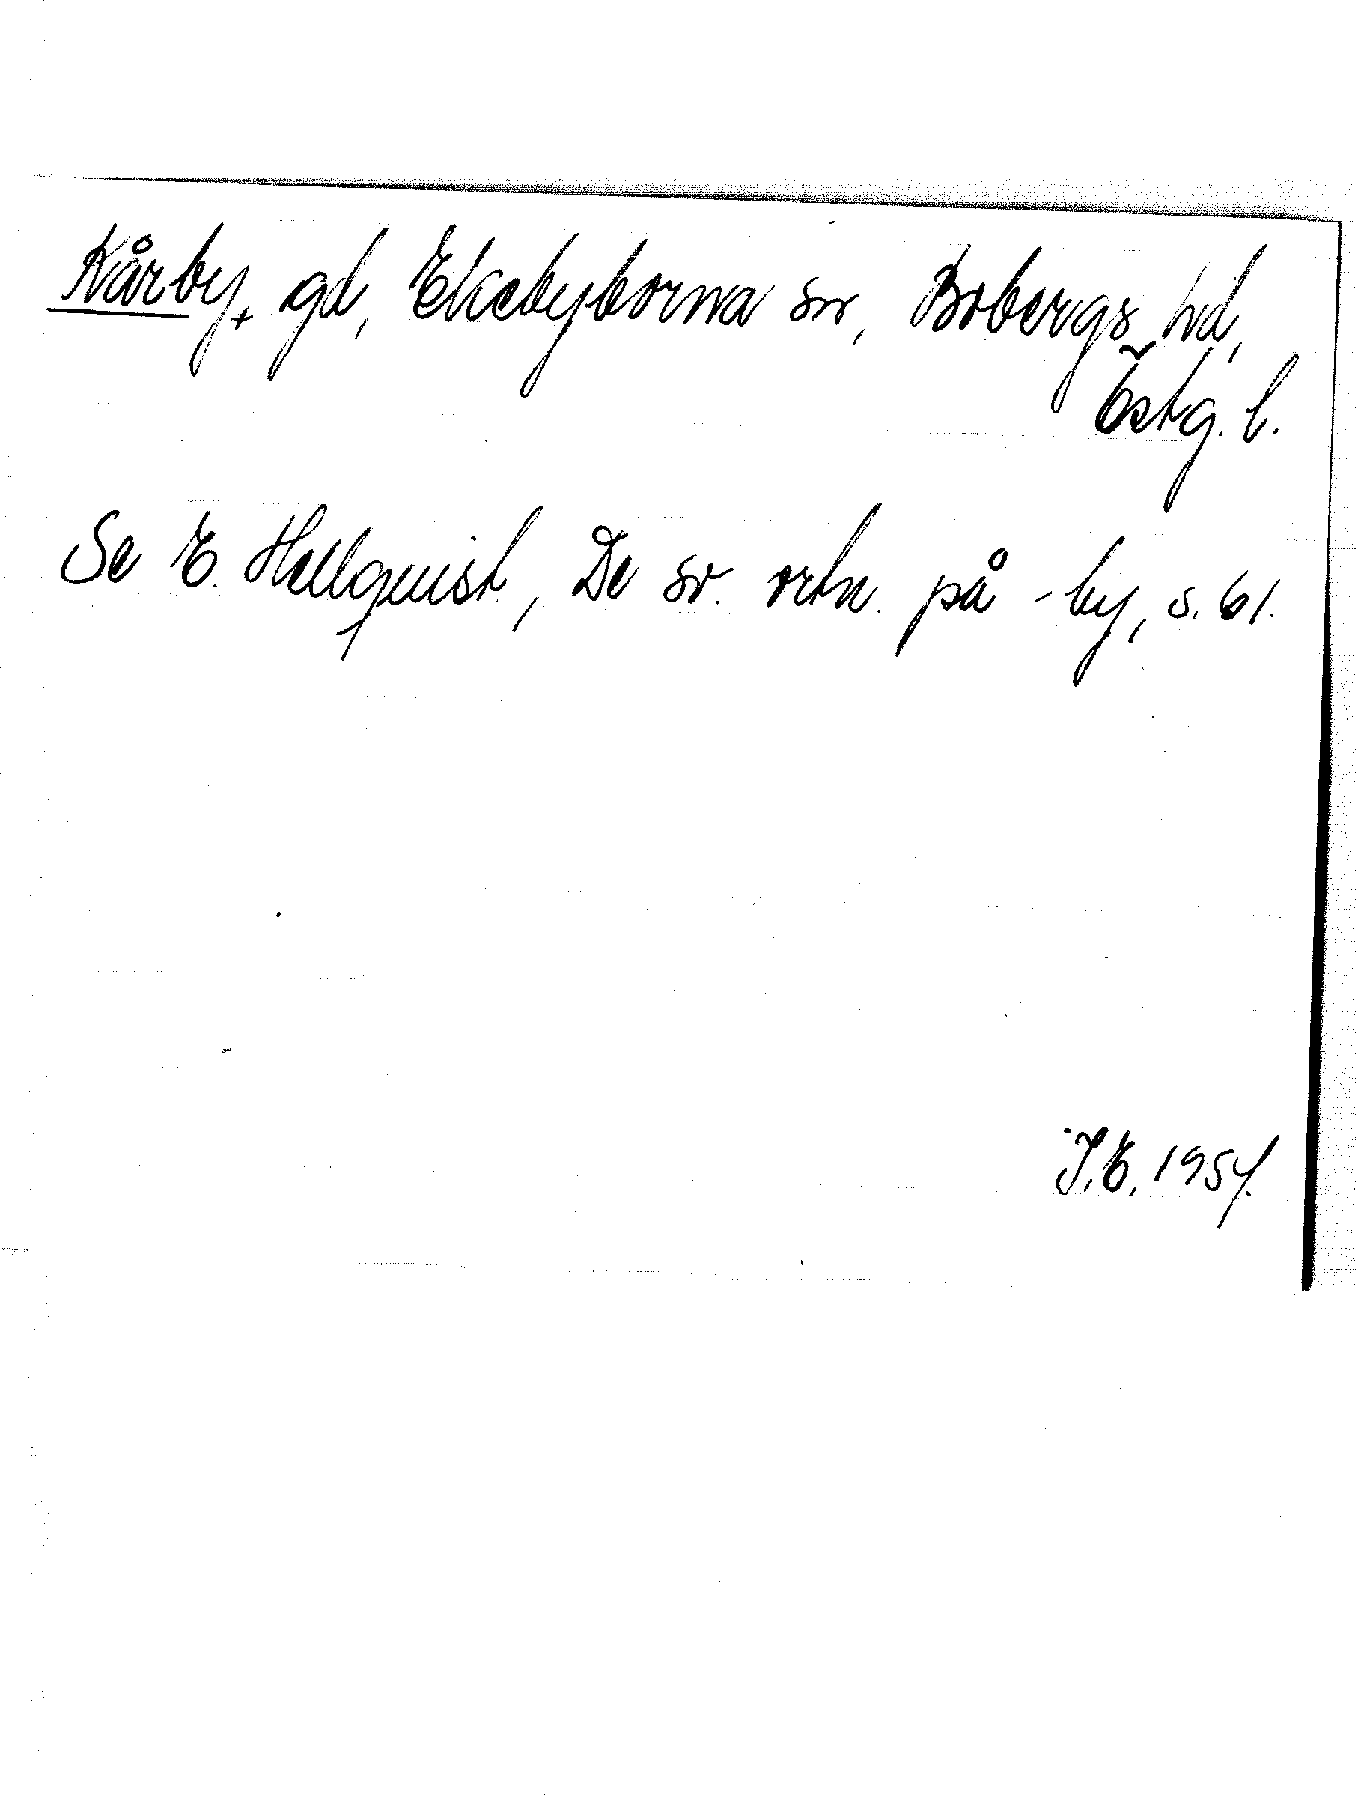 Kårby, gd, Ekebyborna sn, Bobergs hd,
Östg. l.
Se E. Hellquist, De sv. ortn. på -by, s. 61.
I.E. 1954.